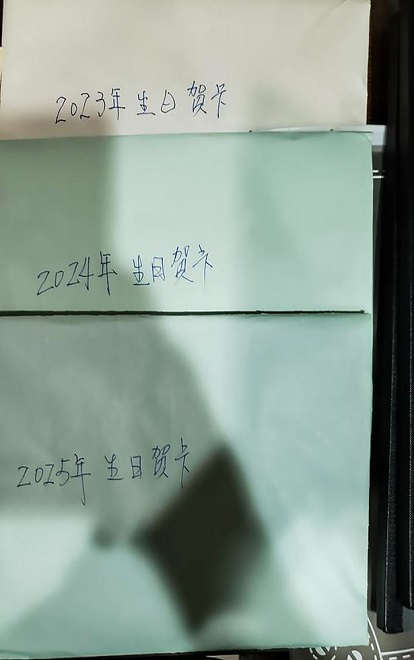 2023年生日贺卡
2024年生日贺卡
2025年生日贺卡